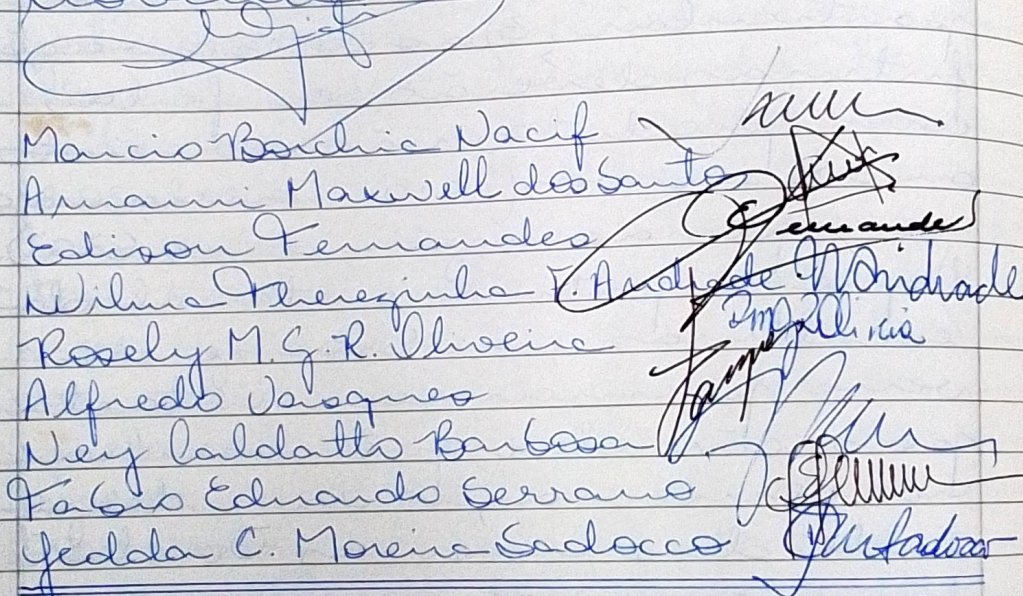 Marcio Borchia Nacif
Amauri Maxwell dos Santos
Edison Fernandes Fernandes
Wilma Therezinha F. Andrade WAndrade
Rosely M. G. R. Oliveira
Alfredo Vasques
Ney Caldatto Barbosa
Fabio Eduardo Serrano
Yedda C. Moreira Sadocco